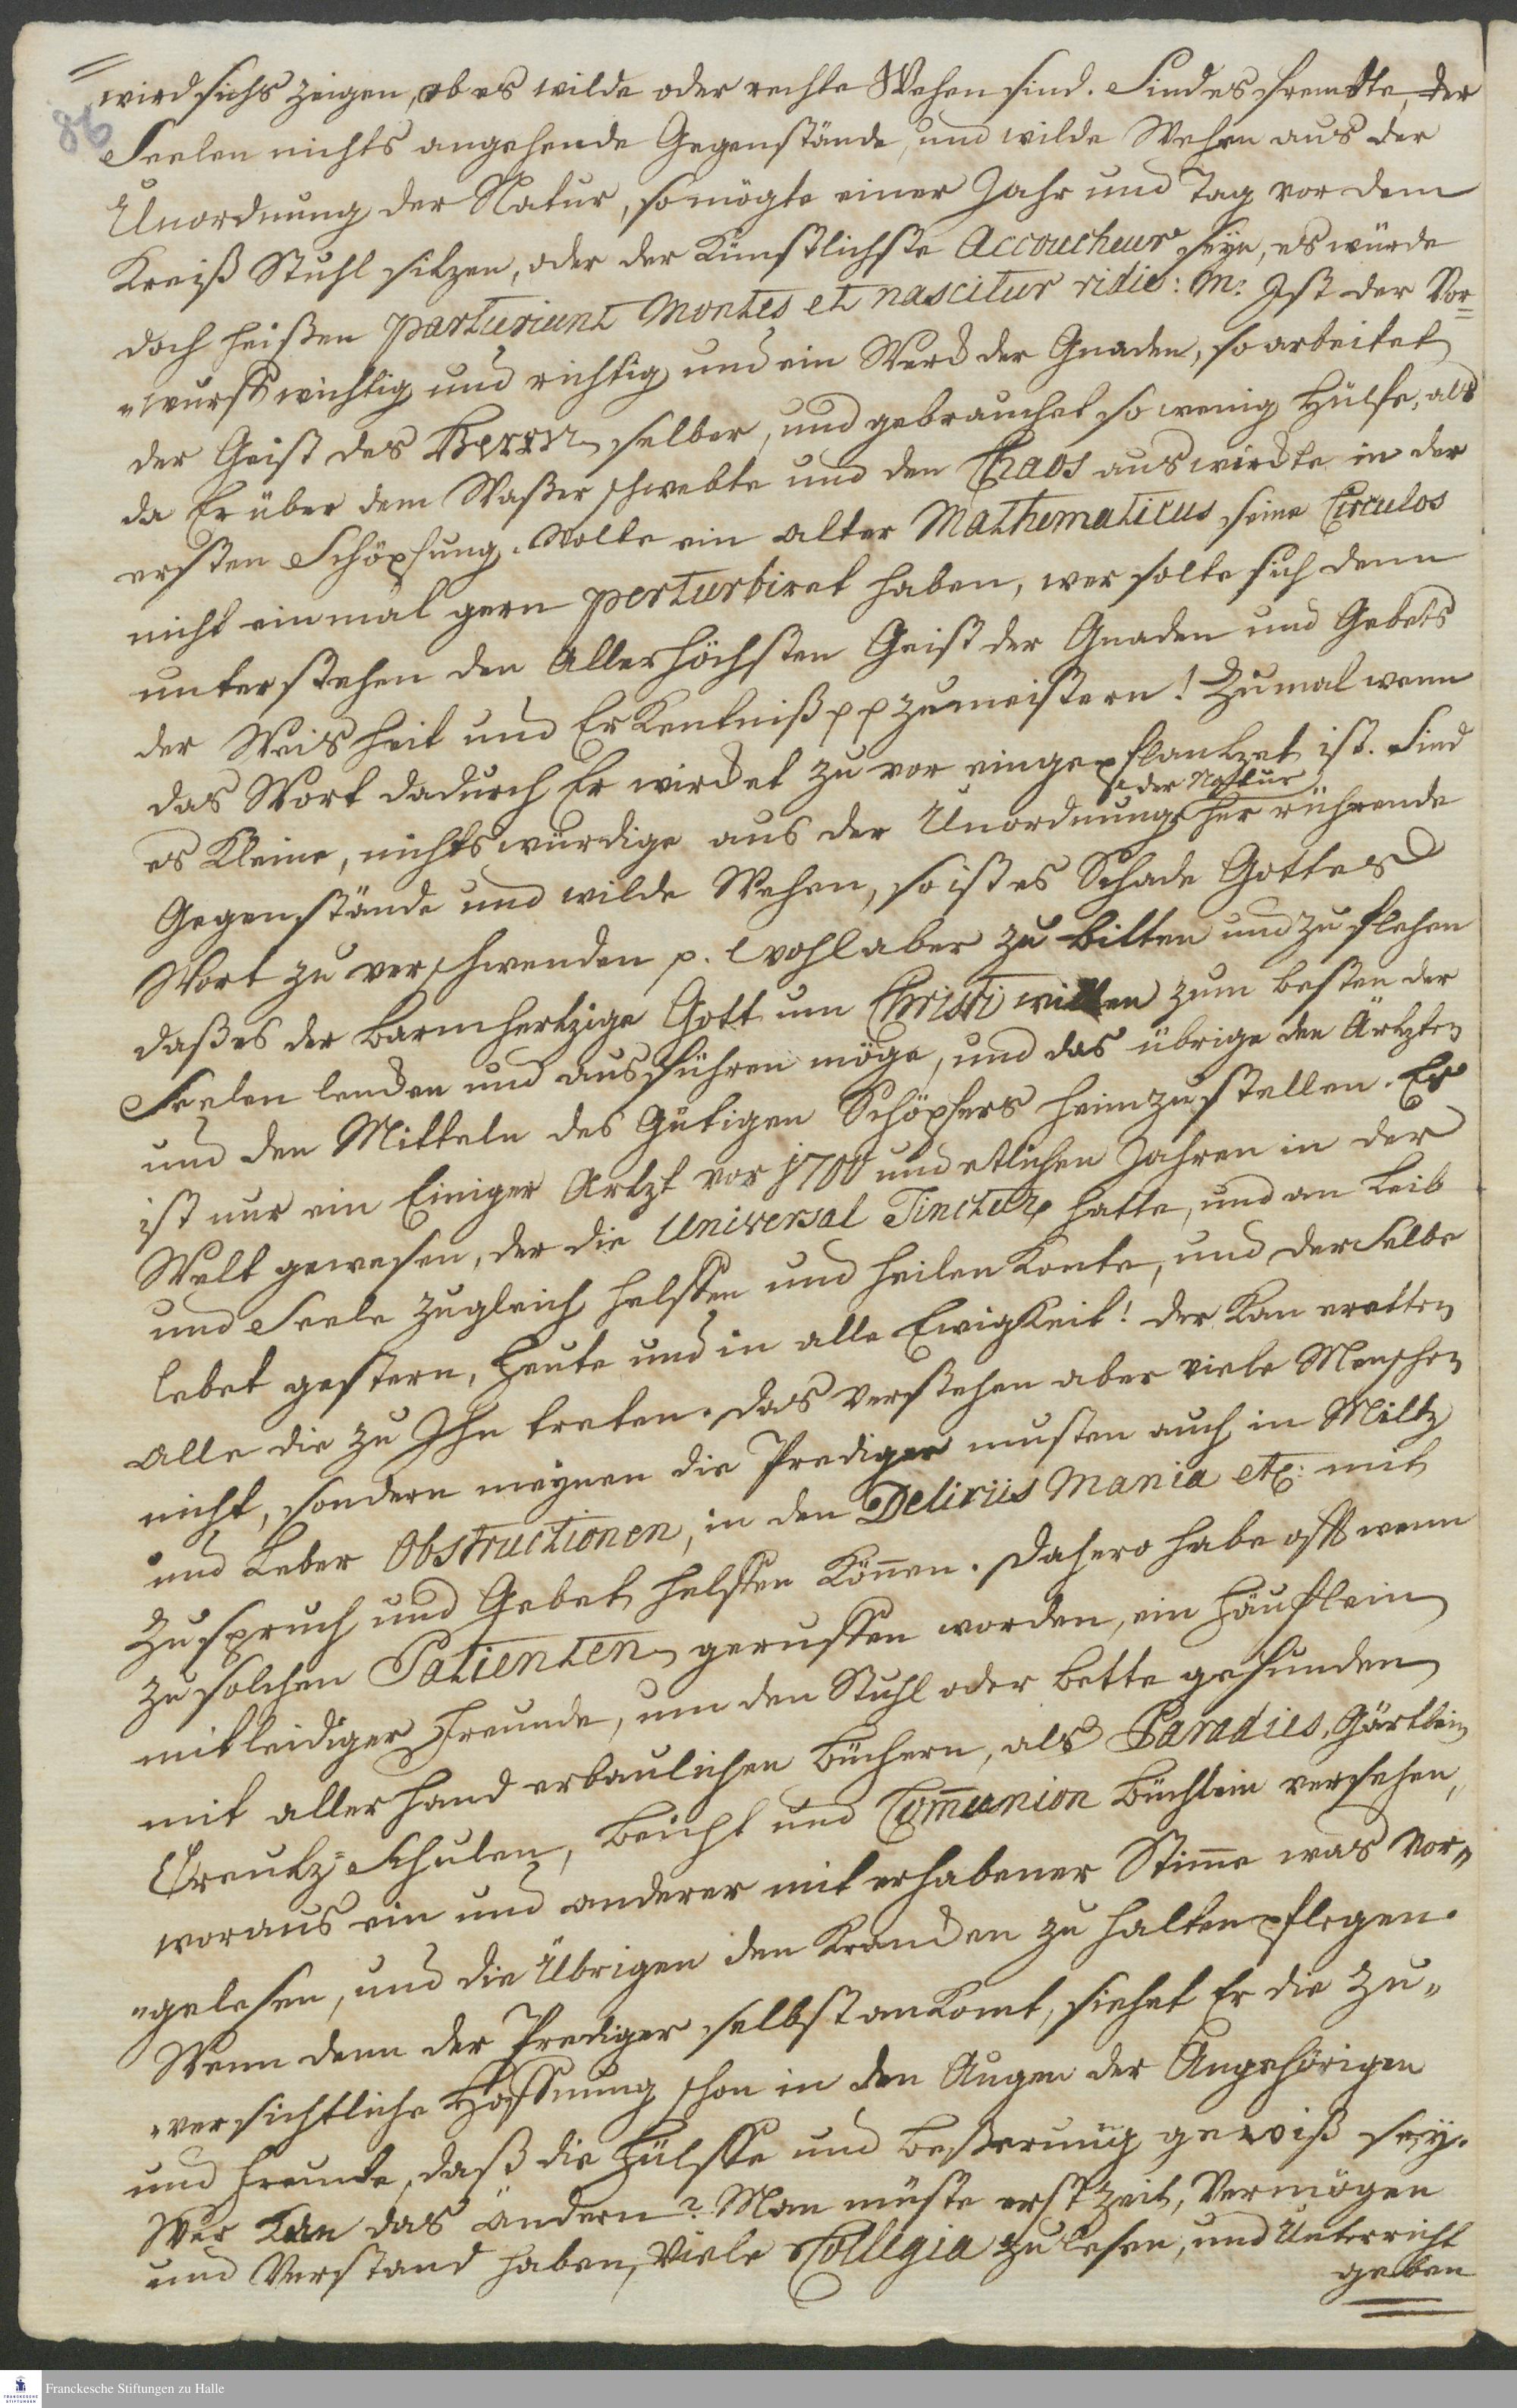 wird sichs zeigen, ob es wilde oder rechte Wehen sind. Sind es fremdte, der
86
Seelen nichts angehende Gegenstände, und wilde Wehen aus der
Unordnung der Natur, so mögte einer Jahr und Tag vor dem
Kreiß Stuhl sitzen, oder der Künstlichste Accoucheur seyn, es würde
doch heißen parturiunt Montes et nascitur ridic: m: Ist der Vor=
"wurff wichtig und richtig und ein Werck der Gnaden, so arbeitet
der Geist des Herrn selber, und gebrauchet so wenig Hülfe, als
da Er über dem Waßer schwebte und den Chaos auswirckte in der
ersten Schöpfung. Wolte ein alter Mathematicus seine Circulos
nicht einmal gern perturbiret haben, wer solte sich denn
unterstehen den Allerhöchsten Geist der Gnaden und Gebets
der Weisheit und Erkentniß pp zu meistern! Zumal wenn
das Wort dadurch Er wircket zuvor eingepflantzet ist. Sind
der Natur
es Kleine, nichtswürdige aus der Unordnung herrührende
Gegenstände und wilde Wehen, so ist es Schade Gottes
Wort zu verschwenden p. wohl aber zu bitten und zu flehen
daß es der barmhertzige Gott um Christi willen zum besten der
Seelen lencken und ausführen möge, und das übrige den Ärtzten
und den Mitteln des Gütigen Schöpfers heimzustellen. Er
ist nur ein Einiger Artzt vor 1700 und etlichen Jahren in der
Welt gewesen, der die Universal Tinctur hatte, und an Leib
und Seele zugleich helffen und heilen Konte, und derselbe
lebet gestern, heute und in alle Ewigkeit! der kan eretten
alle die zu Ihn treten. das verstehen aber viele Menschen
nicht, sondern meynen die Prediger musten auch in Miltz
und Leber Obstructionen, in den Deliriis Mania etc: mit
Zuspruch und Gebet helffen Können. Dahero habe offt wenn
zu solchen Patienten geruffen worden, ein Häuflein
mitleidiger Freunde, um den Stuhl oder Bette gefunden
mit allerhand erbaulichen Büchern, als Paradies, Gärtlein
Creutz=Schulen, Beicht und Com̅union Büchlein versehen,
woraus ein und anderer mit erhabener Stim̅e was vor"
"gelesen, und die Übrigen den Krancken zu halten pflegen.
Wenn denn der Prediger selbst ankomt, siehet Er die Zu"
"versichtliche Hoffnung schon in den Augen der Angehörigen
und Freunde, daß die Hülffe und Beßerung gewiß sey.
Wer kan das ändern? Man müste erst Zeit, Vermögen
und Verstand haben, Viele Collegia zu lesen, und Unterricht
geben
Franckesche Stiftungen zu Halle